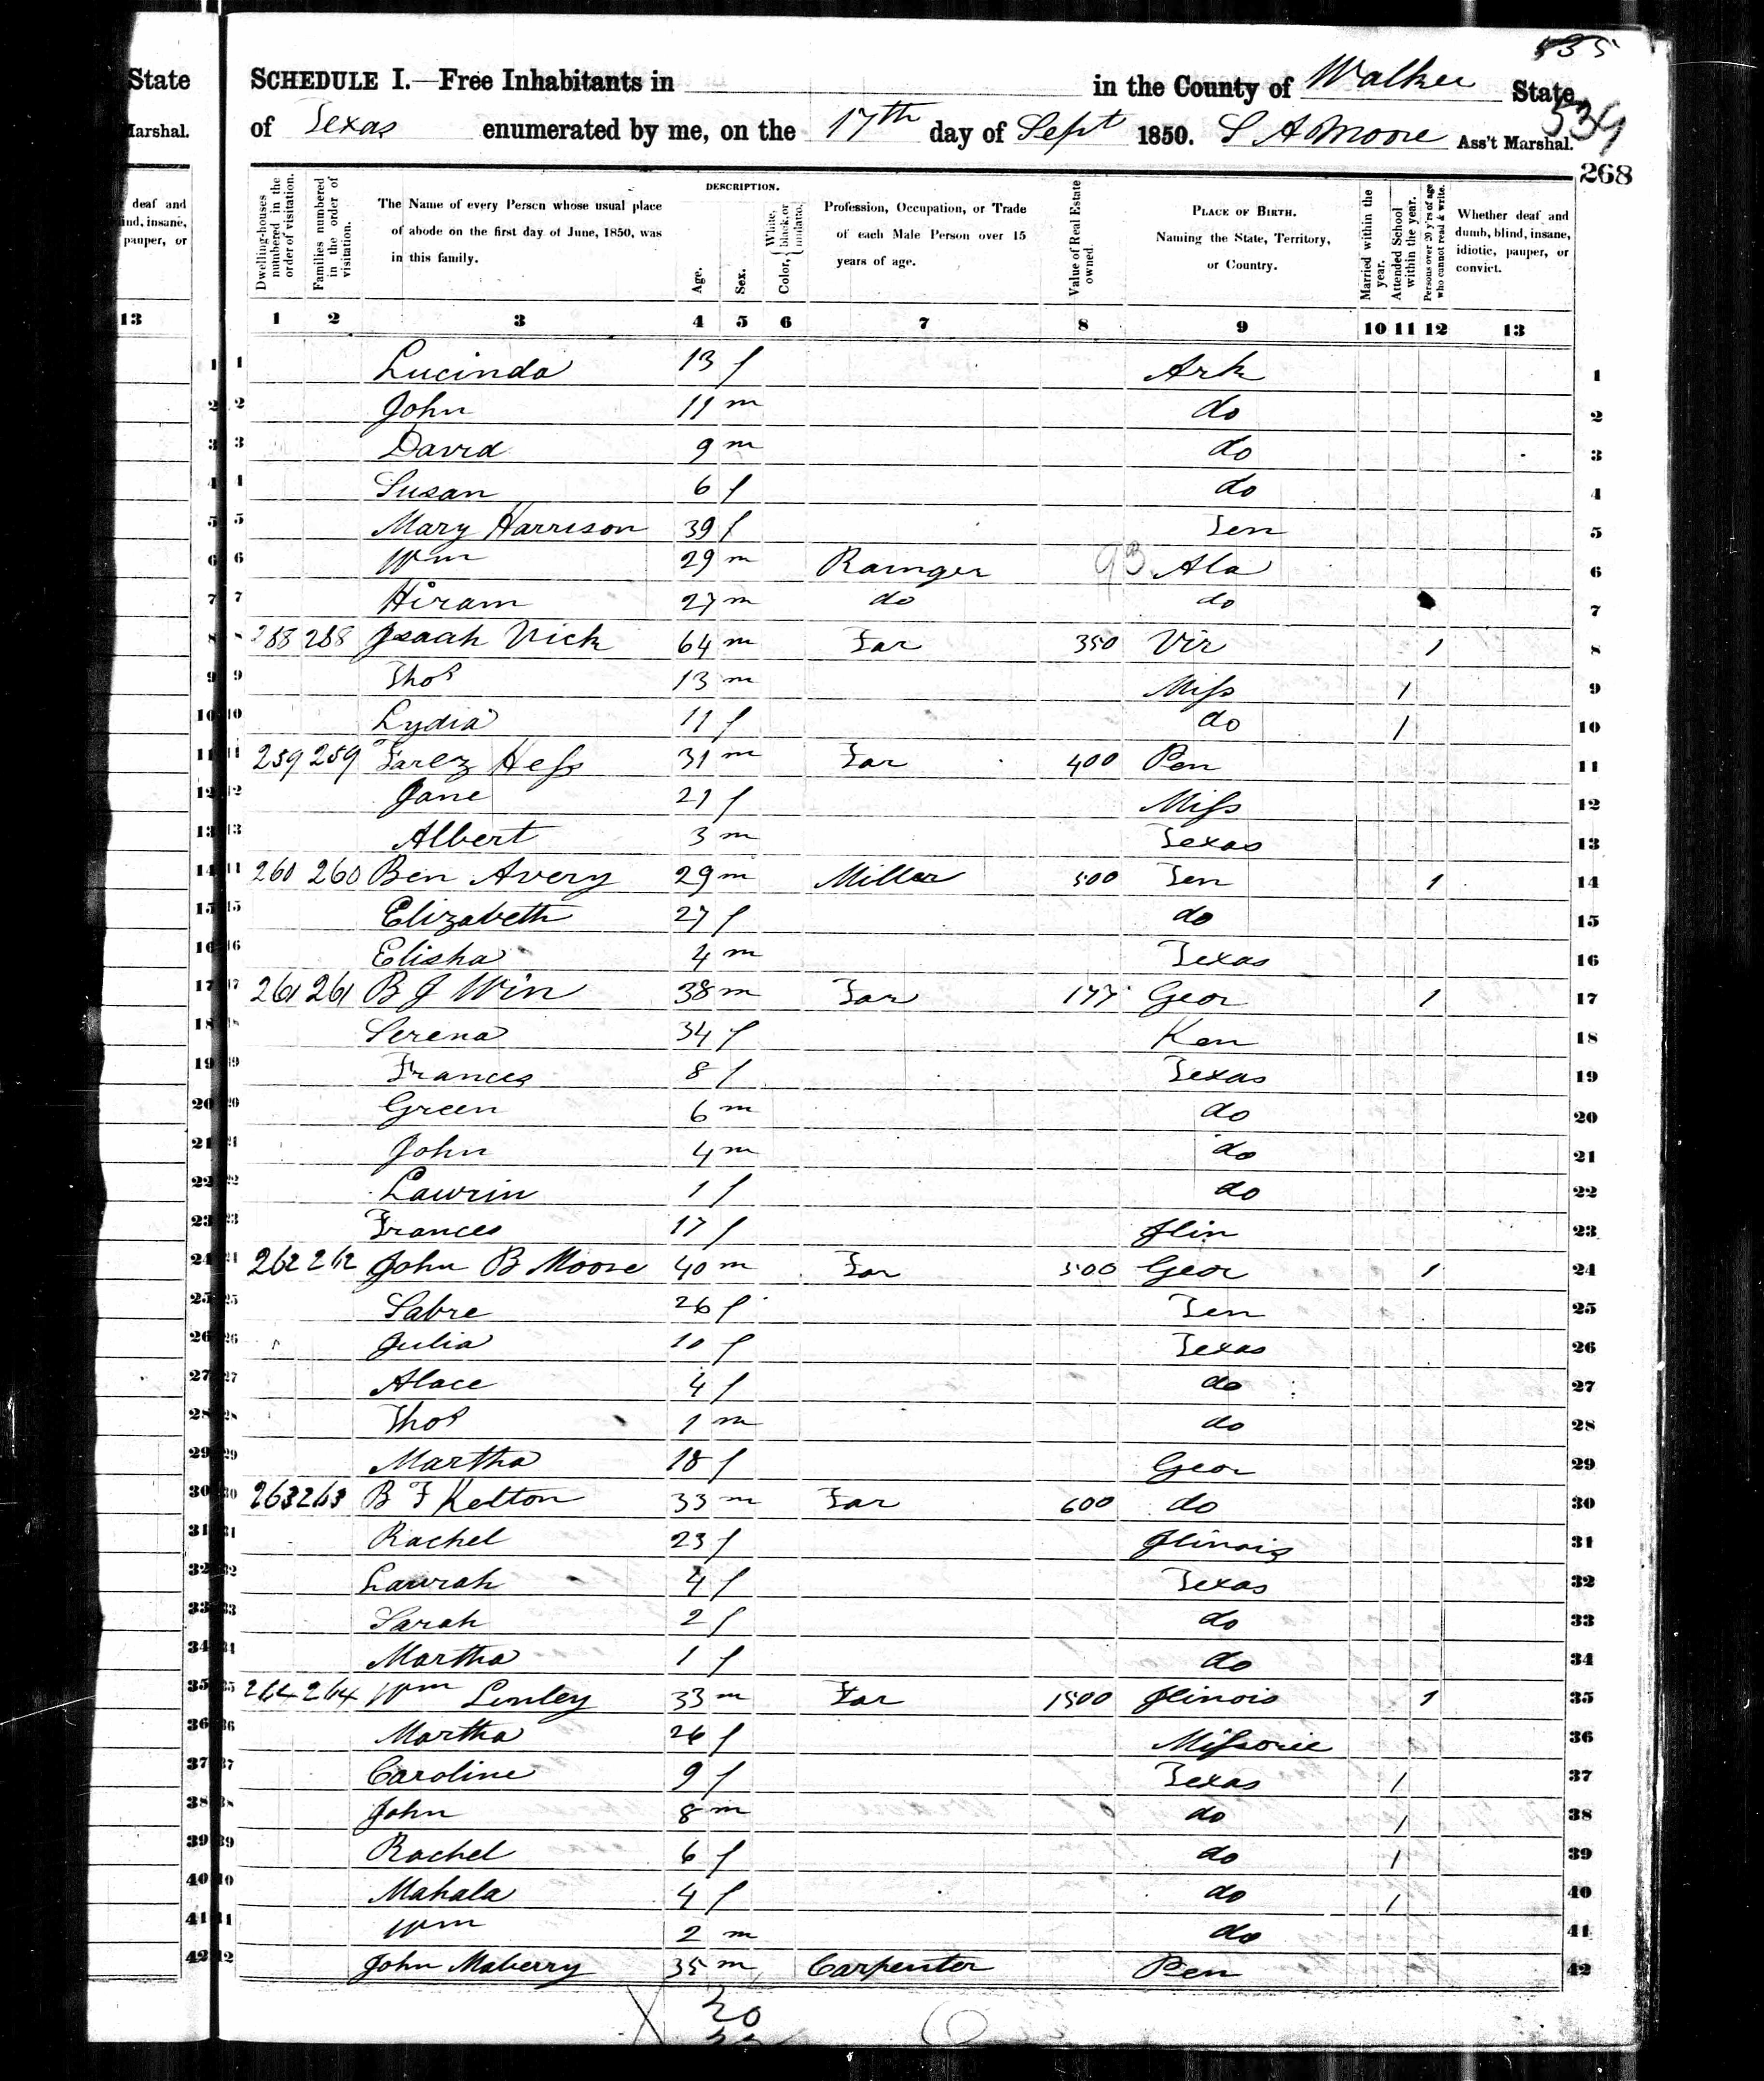 535
State
Marshal.
deaf and
ind, insane,
pauper, or
13
SCHEDULE I.—Free Inhabitants in in the County of Walker State
of Texas enumerated by me, on the 17th day of Sept 1850. S A Moore Ass't Marshal.
534
268
DESCRIPTION.
Dwelling-houses numbered in the order of visitation.
Families numbered in the order of visitation.
The Name of every Person whose usual place of abode on the first day of June, 1850, was in this family.
Age.
Sex.
Color, White, black, or mulatto.
Profession, Occupation, or Trade of each Male Person over 15 years of age.
Value of Real Estate owned.
PLACE OF BIRTH. Naming the State, Territory, or Country.
Married within the year.
Attended School within the year.
Persons over 20 y'rs of age who cannot read & write.
Whether deaf and dumb, blind, insane, idiotic, pauper, or convict.
1 2 3 4 5 6 7 8 9 10 11 12 13
1 1 Lucinda 13 f Ark 1
2 2 John 11 m do 2
3 3 David 9 m do 3
4 4 Susan 6 f do 4
5 5 Mary Harrison 39 f Ten 5
6 6 Wm 29 m Rainger 93 Ala 6
7 7 Hiram 27 m do do 7
8 8 288 288 Isaah Vick 64 m Far 350 Vir 1 8
9 9 Thos 13 m Miss 1 9
10 10 Lydia 11 f do 1 10
11 11 259 259 Farez Hess 31 m Far 400 Pen 11
12 12 Jane 21 f Miss 12
13 13 Albert 3 m Texas 13
14 14 260 260 Ben Avery 29 m Miller 500 Ten 1 14
15 15 Elizabeth 27 f do 15
16 16 Elisha 4 m Texas 16
17 17 261 261 B J Win 38 m Far 177 Geor 1 17
18 18 Serena 34 f Ken 18
19 19 Frances 8 f Texas 19
20 20 Green 6 m do 20
21 21 John 4 m do 21
22 22 Lawrin 1 f do 22
23 23 Frances 17 f Ilin 23
24 24 262 262 John B Moore 40 m Far 500 Geor 1 24
25 25 Sabre 26 f Ten 25
26 26 Julia 10 f Texas 26
27 27 Alace 4 f do 27
28 28 Thos 1 m do 28
29 29 Martha 18 f Geor 29
30 30 263 263 B F Kelton 33 m Far 600 do 30
31 31 Rachel 23 f Ilinois 31
32 32 Lawrah 4 f Texas 32
33 33 Sarah 2 f do 33
34 34 Martha 1 f do 34
35 35 264 264 Wm Lenley 33 m Far 1500 Ilinois 1 35
36 36 Martha 26 f Missourie 36
37 37 Caroline 9 f Texas 1 37
38 38 John 8 m do 1 38
39 39 Rachel 6 f do 1 39
40 40 Mahala 4 f do 1 40
41 41 Wm 2 m do 41
42 42 John Maberry 35 m Carpenter Pen 42
20